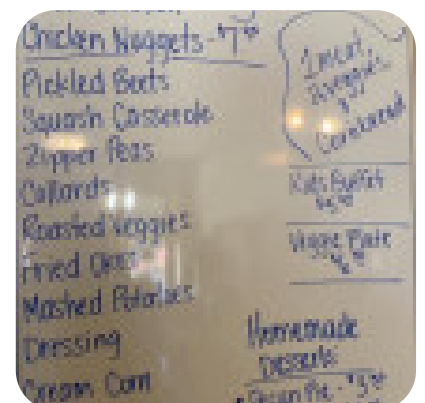 Chicken Nuggets - $7
Pickled Beets
Squash Casserole
Zipper Peas
Collards
Roasted Veggies
Fried Okra
Mashed Potatoes
Dressing
Cream Corn
1 meat,
veggies
Cornbread
Kids Buffet
Veggie Plate
Homemade
Desserts
Pecan Pie